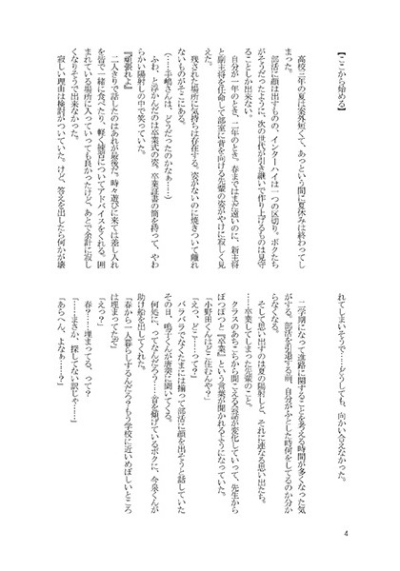 【ここから始める】
　高校三年の夏は案外短くて、あっという間に夏休みは終わってし
まった。
　部活に顔は出すものの、インターハイは一つの区切り。ボクたち
がそうだったように、次の世代が引き継いで作り上げるものは見守
ることしか出来ない。
　自分が一年のとき、二年のとき、春まではまだ遠いのに、新主将
と副主将を任命して部室に背を向ける先輩の姿がやけに寂しく見
えた。
　残された場所に気持ちは存在する。姿がないのに焼きついて離れ
ないものがそこにある。
（……手嶋さんは、どうだったのかなぁ……）
　ふわ、と浮かんだのは卒業式の姿。卒業証書の筒を持って、やわ
らかい陽射しの中で笑っていた。
『頑張れよ』
　二人きりで話したのはあれが最後だ。時々遊びに来ては差し入れ
を皆で一緒に食べたり、軽く練習についてアドバイスをくれる。囲
まれている場所に入っていっても良かったけど、あとで余計に寂し
くなりそうで出来なかった。
　寂しい理由は検討がついていた。けど、答えを出したら何かが壊
れてしまいそうで……どうしても、向かい合えなかった。
　二学期になって進路に関することを考える時間が多くなった気
がする。部活を引退する前、自分がふとした時何をしてるのか分か
らなくなる。
　そして思い出すのは夏の陽射しと、それに連なる思い出たち。
……卒業してしまった先輩のこと。
　クラスのあちこちから聞こえる会話が変化していって、先生から
ぽつぽつと『卒業』という言葉が聞かれるようになっていた。
「小野田くんはどこ住むんや？」
「えっ、どこ……って？」
　バラバラでなくたまには揃って部活に顔を出そうと話していた
その日、鳴子くんが悪戯に聞いてくる。
　何処に、ってなんだろう？……首を傾げているボクに、今泉くんが
助け船を出してくれた。
「春から一人暮らしするんだろ？もう学校に近いめぼしいところ
は埋まってたぞ」
「えっ？」
　春？……埋まってる、って？
「……まさか、探してない訳じゃ……」
「あらへん、よなぁ……？」
4